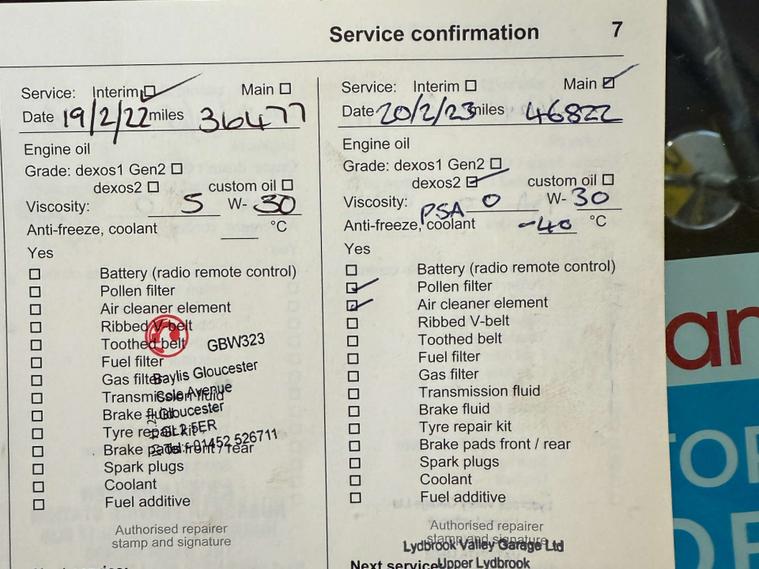 Service confirmation 7
Service: Interim Main
Date 19/2/22 miles 36477
Engine oil
Grade: dexos1 Gen2
dexos2 custom oil
Viscosity: 5 W- 30
Anti-freeze, coolant °C
Yes
Battery (radio remote control)
Pollen filter
Air cleaner element
Ribbed V-belt
Toothed belt
Fuel filter
Gas filter
Transmission fluid
Brake fluid
Tyre repair kit
Brake pads front / rear
Spark plugs
Coolant
Fuel additive
GBW323
Baylis Gloucester
Cole Avenue
Gloucester
GL2 5ER
Tel: 01452 526711
Authorised repairer
stamp and signature
Service: Interim Main
Date 20/2/23 miles 46822
Engine oil
Grade: dexos1 Gen2
dexos2 custom oil
Viscosity: PSA 0 W- 30
Anti-freeze, coolant -40 °C
Yes
Battery (radio remote control)
Pollen filter
Air cleaner element
Ribbed V-belt
Toothed belt
Fuel filter
Gas filter
Transmission fluid
Brake fluid
Tyre repair kit
Brake pads front / rear
Spark plugs
Coolant
Fuel additive
Authorised repairer
stamp and signature
Lydbrook Valley Garage Ltd
Next service
Upper Lydbrook